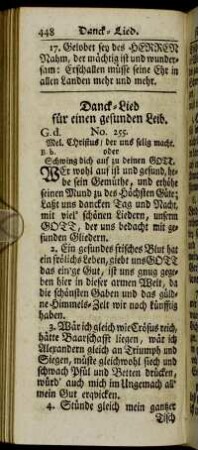 448 Danck-Lied.
17. Gelobet sey des HERREN
Nahm, der mächtig ist und wunder-
sam: Erschallen müsse seine Ehr in
allen Landen mehr und mehr.
Danck-Lied
für einen gesunden Leib.
G. d. No. 255.
Mel. Christus/ der uns selig macht.
B. b. oder
Schwing dich auf zu deinen GOTT.
Wer wohl auf ist und gesund, he-
be sein Gemüthe, und erhöhe
seinen Mund zu des Höchsten Güte:
Laßt uns dancken Tag und Nacht,
mit viel' schönen Liedern, unserm
GOTT, der uns bedacht mit ge-
sunden Gliedern.
2. Ein gesundes frisches Blut hat
ein frölichs Leben, giebt uns GOTT
das ein'ge Gut, ist uns gnug gege-
ben hier in dieser armen Welt, da
die schönsten Gaben und das güld-
ne Himmels-Zelt wir noch künfftig
haben.
3. Wär ich gleich wie Crösus reich,
hätte Baarschafft liegen, wär ich
Alexandern gleich an Triumph und
Siegen, müste gleichwohl siech und
schwach Pfül und Betten drücken,
würd' auch mich im Ungemach all'
mein Gut erqvicken.
4. Stünde gleich mein gantzer
Tisch